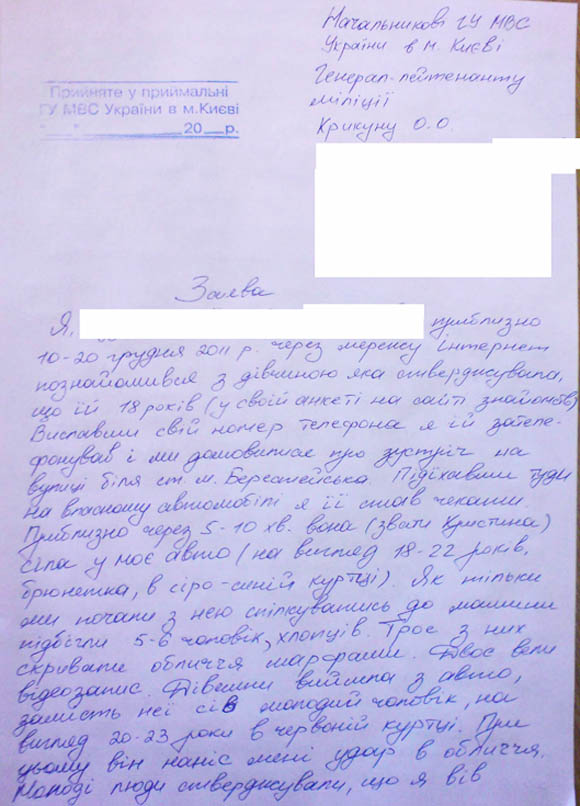 Начальникові ГУ МВС
України в м. Києві
Генерал-лейтенанту
міліції
Крикуну О.О.
Прийняте у приймальні
ГУ МВС України в м.Києві
"___"____________20__р.
Заява
Я, приблизно
10-20 грудня 2011 р. через мережу інтернет
познайомився з дівчиною яка стверджувала,
що їй 18 років (у своїй анкеті на сайті знайомств)
Виславши свій номер телефона я їй зателе-
фонував і ми домовились про зустріч на
вулиці біля ст. м. Берестейська. Підїхавши туди
на власному автомобілі я її став чекати.
Приблизно через 5-10 хв. вона (звати Христина)
сіла у моє авто (на вигляд 18-22 років,
брюнетка, в сіро-синій куртці). Як тільки
ми почали з нею спілкуватись до машини
підбігли 5-6 чоловік, хлопців. Троє з них
скривали обличчя шарфами. Двоє вели
відеозапис. Дівчина вийшла з авто,
замість неї сів молодий чоловік, на
вигляд 20-23 роки в червоній куртці. При
цьому він наніс мені удар в обличчя.
Молоді люди стверджували, що я вів